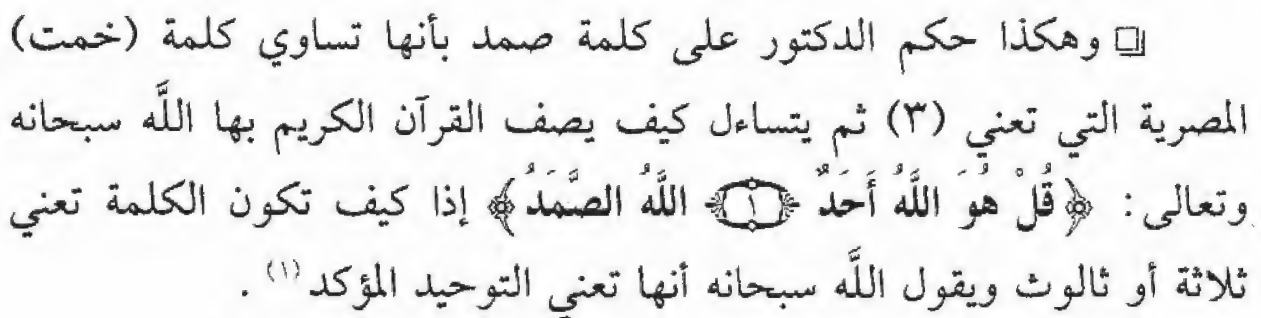 ❏ وهكذا حكم الدكتور على كلمة صمد بأنها تساوي كلمة (خمت)
المصرية التي تعني (٣) ثم يتساءل كيف يصف القرآن الكريم بها اللَّه سبحانه
وتعالى: ﴿قُلْ هُوَ اللَّهُ أَحَدٌ ﴿١﴾ اللَّهُ الصَّمَدُ﴾ إذا كيف تكون الكلمة تعني
ثلاثة أو ثالوث ويقول اللَّه سبحانه أنها تعني التوحيد المؤكد(١).